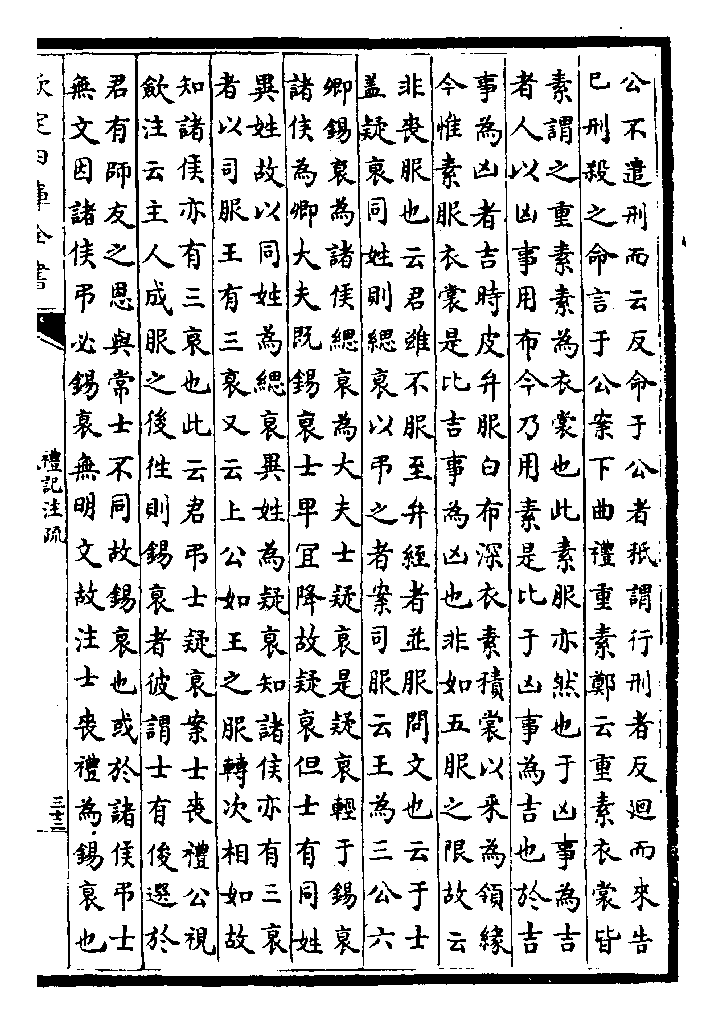 公不遣刑而云反命于公者秖謂行刑者反迴而來告
已刑殺之命言于公案下曲禮重素鄭云重素衣裳皆
素謂之重素素為衣裳也此素服亦然也于凶事為吉
者人以凶事用布今乃用素是比于凶事為吉也於吉
事為凶者吉時皮弁服白布深衣素積裳以采為領緣
今惟素服衣裳是比吉事為凶也非如五服之限故云
非喪服也云君雖不服至弁絰者並服問文也云于士
盖疑衰同姓則緦衰以弔之者案司服云王為三公六
卿錫衰為諸侯緦衰為大夫士疑衰是疑衰輕于錫衰
諸侯為卿大夫既錫衰士卑宜降故疑衰但士有同姓
異姓故以同姓為緦衰異姓為疑衰知諸侯亦有三衰
者以司服王有三衰又云上公如王之服轉次相如故
知諸侯亦有三衰也此云君弔士疑衰案士喪禮公視
歛注云主人成服之後徃則錫衰者彼謂士有俊選於
君有師友之恩與常士不同故錫衰也或於諸侯弔士
無文因諸侯弔必錫衰無明文故注士喪禮為錫衰也
欽定四庫全書
禮記注疏
三十三